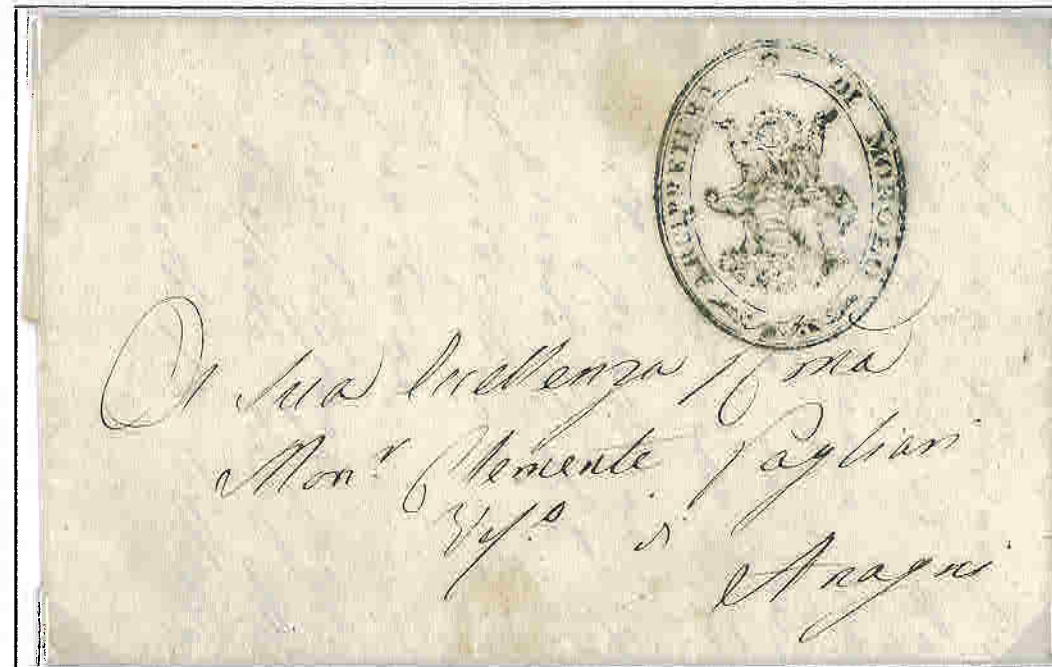 ARCIPRETURA DI MOROLO
A Sua Eccellenza Rma
Monr Clemente Pagliari
Vvo di
Anagni